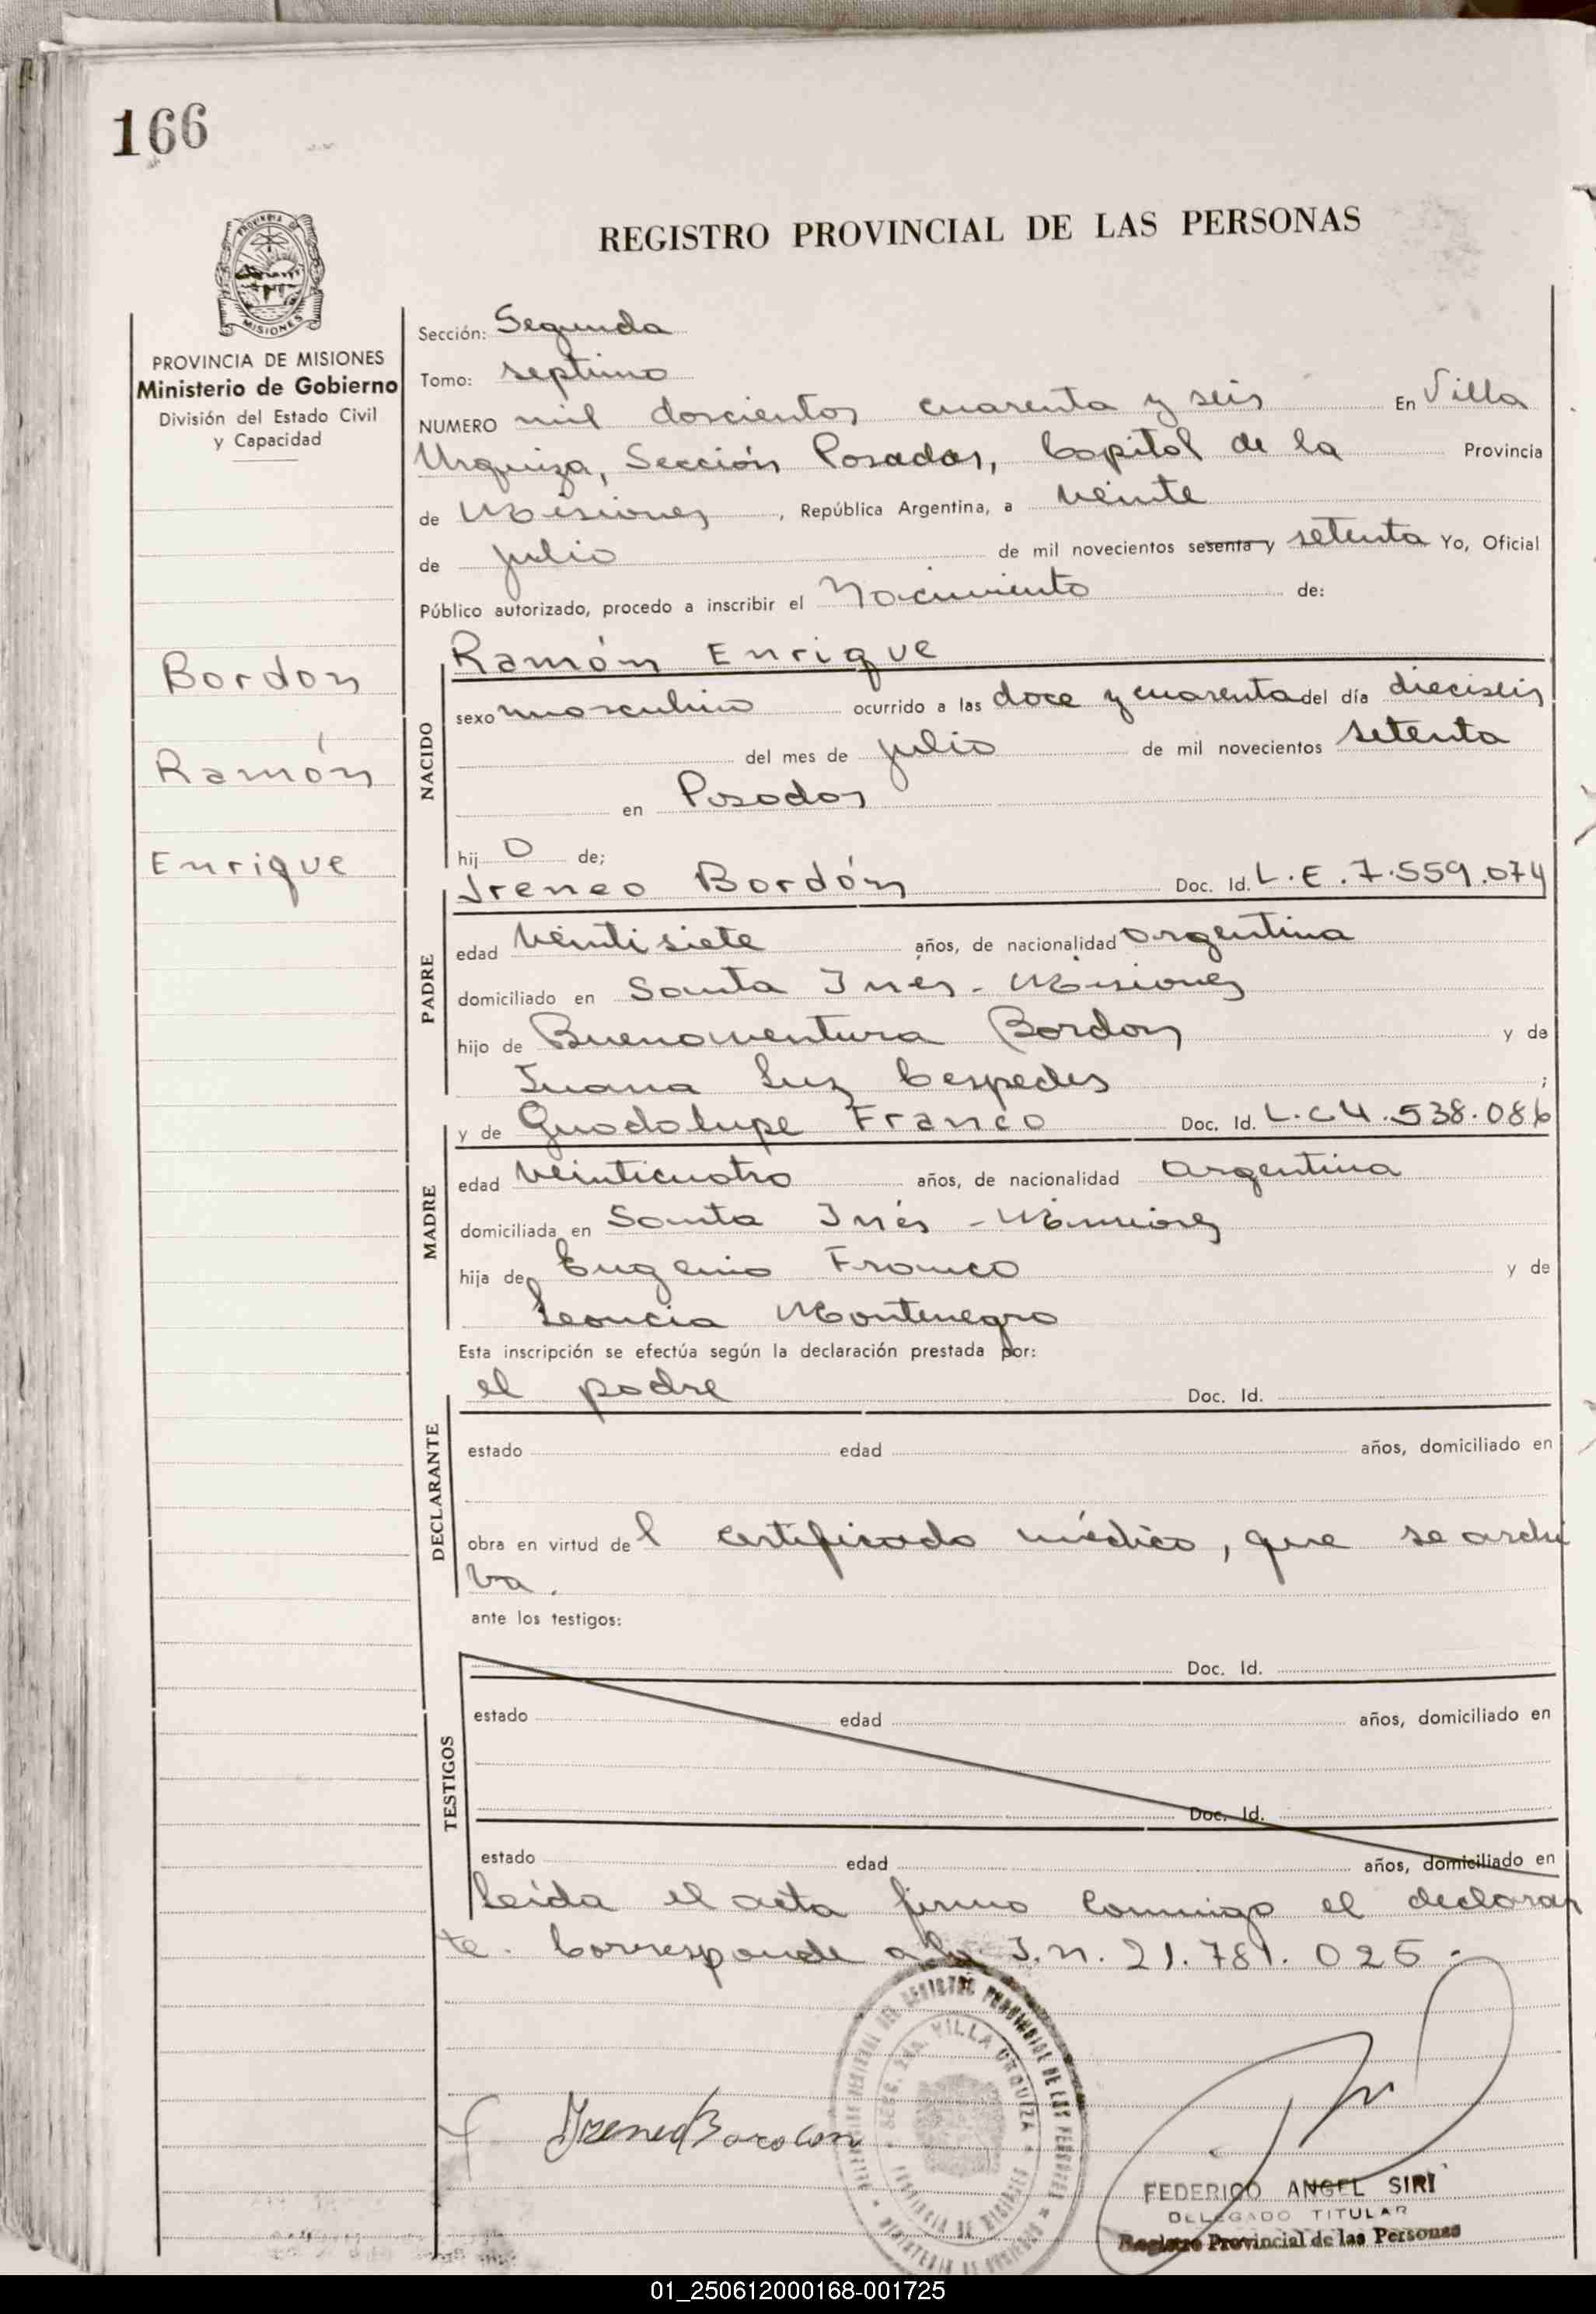 166
REGISTRO PROVINCIAL DE LAS PERSONAS
PROVINCIA
MISIONES
PROVINCIA DE MISIONES
Ministerio de Gobierno
División del Estado Civil
y Capacidad
Bordon
Ramón
Enrique
Sección: Segunda
Tomo: septimo
NUMERO mil doscientos cuarenta y seis En Villa
Urquiza, Sección Posadas, Capital de la Provincia
de Misiones, República Argentina, a veinte
de julio de mil novecientos sesenta y setenta Yo, Oficial
Público autorizado, procedo a inscribir el Nacimiento de:
NACIDO
Ramón Enrique
sexo masculino ocurrido a las doce y cuarenta del día dieciseis
del mes de julio de mil novecientos setenta
en Posadas
hij o de;
PADRE
Ireneo Bordón Doc. Id. L.E. 7.559.074
edad veintisiete años, de nacionalidad argentina
domiciliado en Santa Inés - Misiones
hijo de Buenaventura Bordon y de
Juana Luz Cespedes ;
MADRE
y de Guadalupe Franco Doc. Id. L.C 4.538.086
edad veinticuatro años, de nacionalidad argentina
domiciliada en Santa Inés - Misiones
hija de Eugenio Franco y de
Leoncia Montenegro
Esta inscripción se efectúa según la declaración prestada por:
DECLARANTE
el padre Doc. Id.
estado edad años, domiciliado en
obra en virtud de l certificado médico, que se archi
va.
ante los testigos:
TESTIGOS
Doc. Id.
estado edad años, domiciliado en
Doc. Id.
estado edad años, domiciliado en
Leida el acta firma conmigo el declaran
te. Corresponde a la I.N. 21.781.025.-
DEL REGISTRO PROVINCIAL DE LAS PERSONAS
SECC. 2DA. VILLA URQUIZA
PROVINCIA DE MISIONES
MINISTERIO DE GOBIERNO
Ireneo Bordon
FEDERICO ANGEL SIRI
DELEGADO TITULAR
Registro Provincial de las Personas
01_250612000168-001725